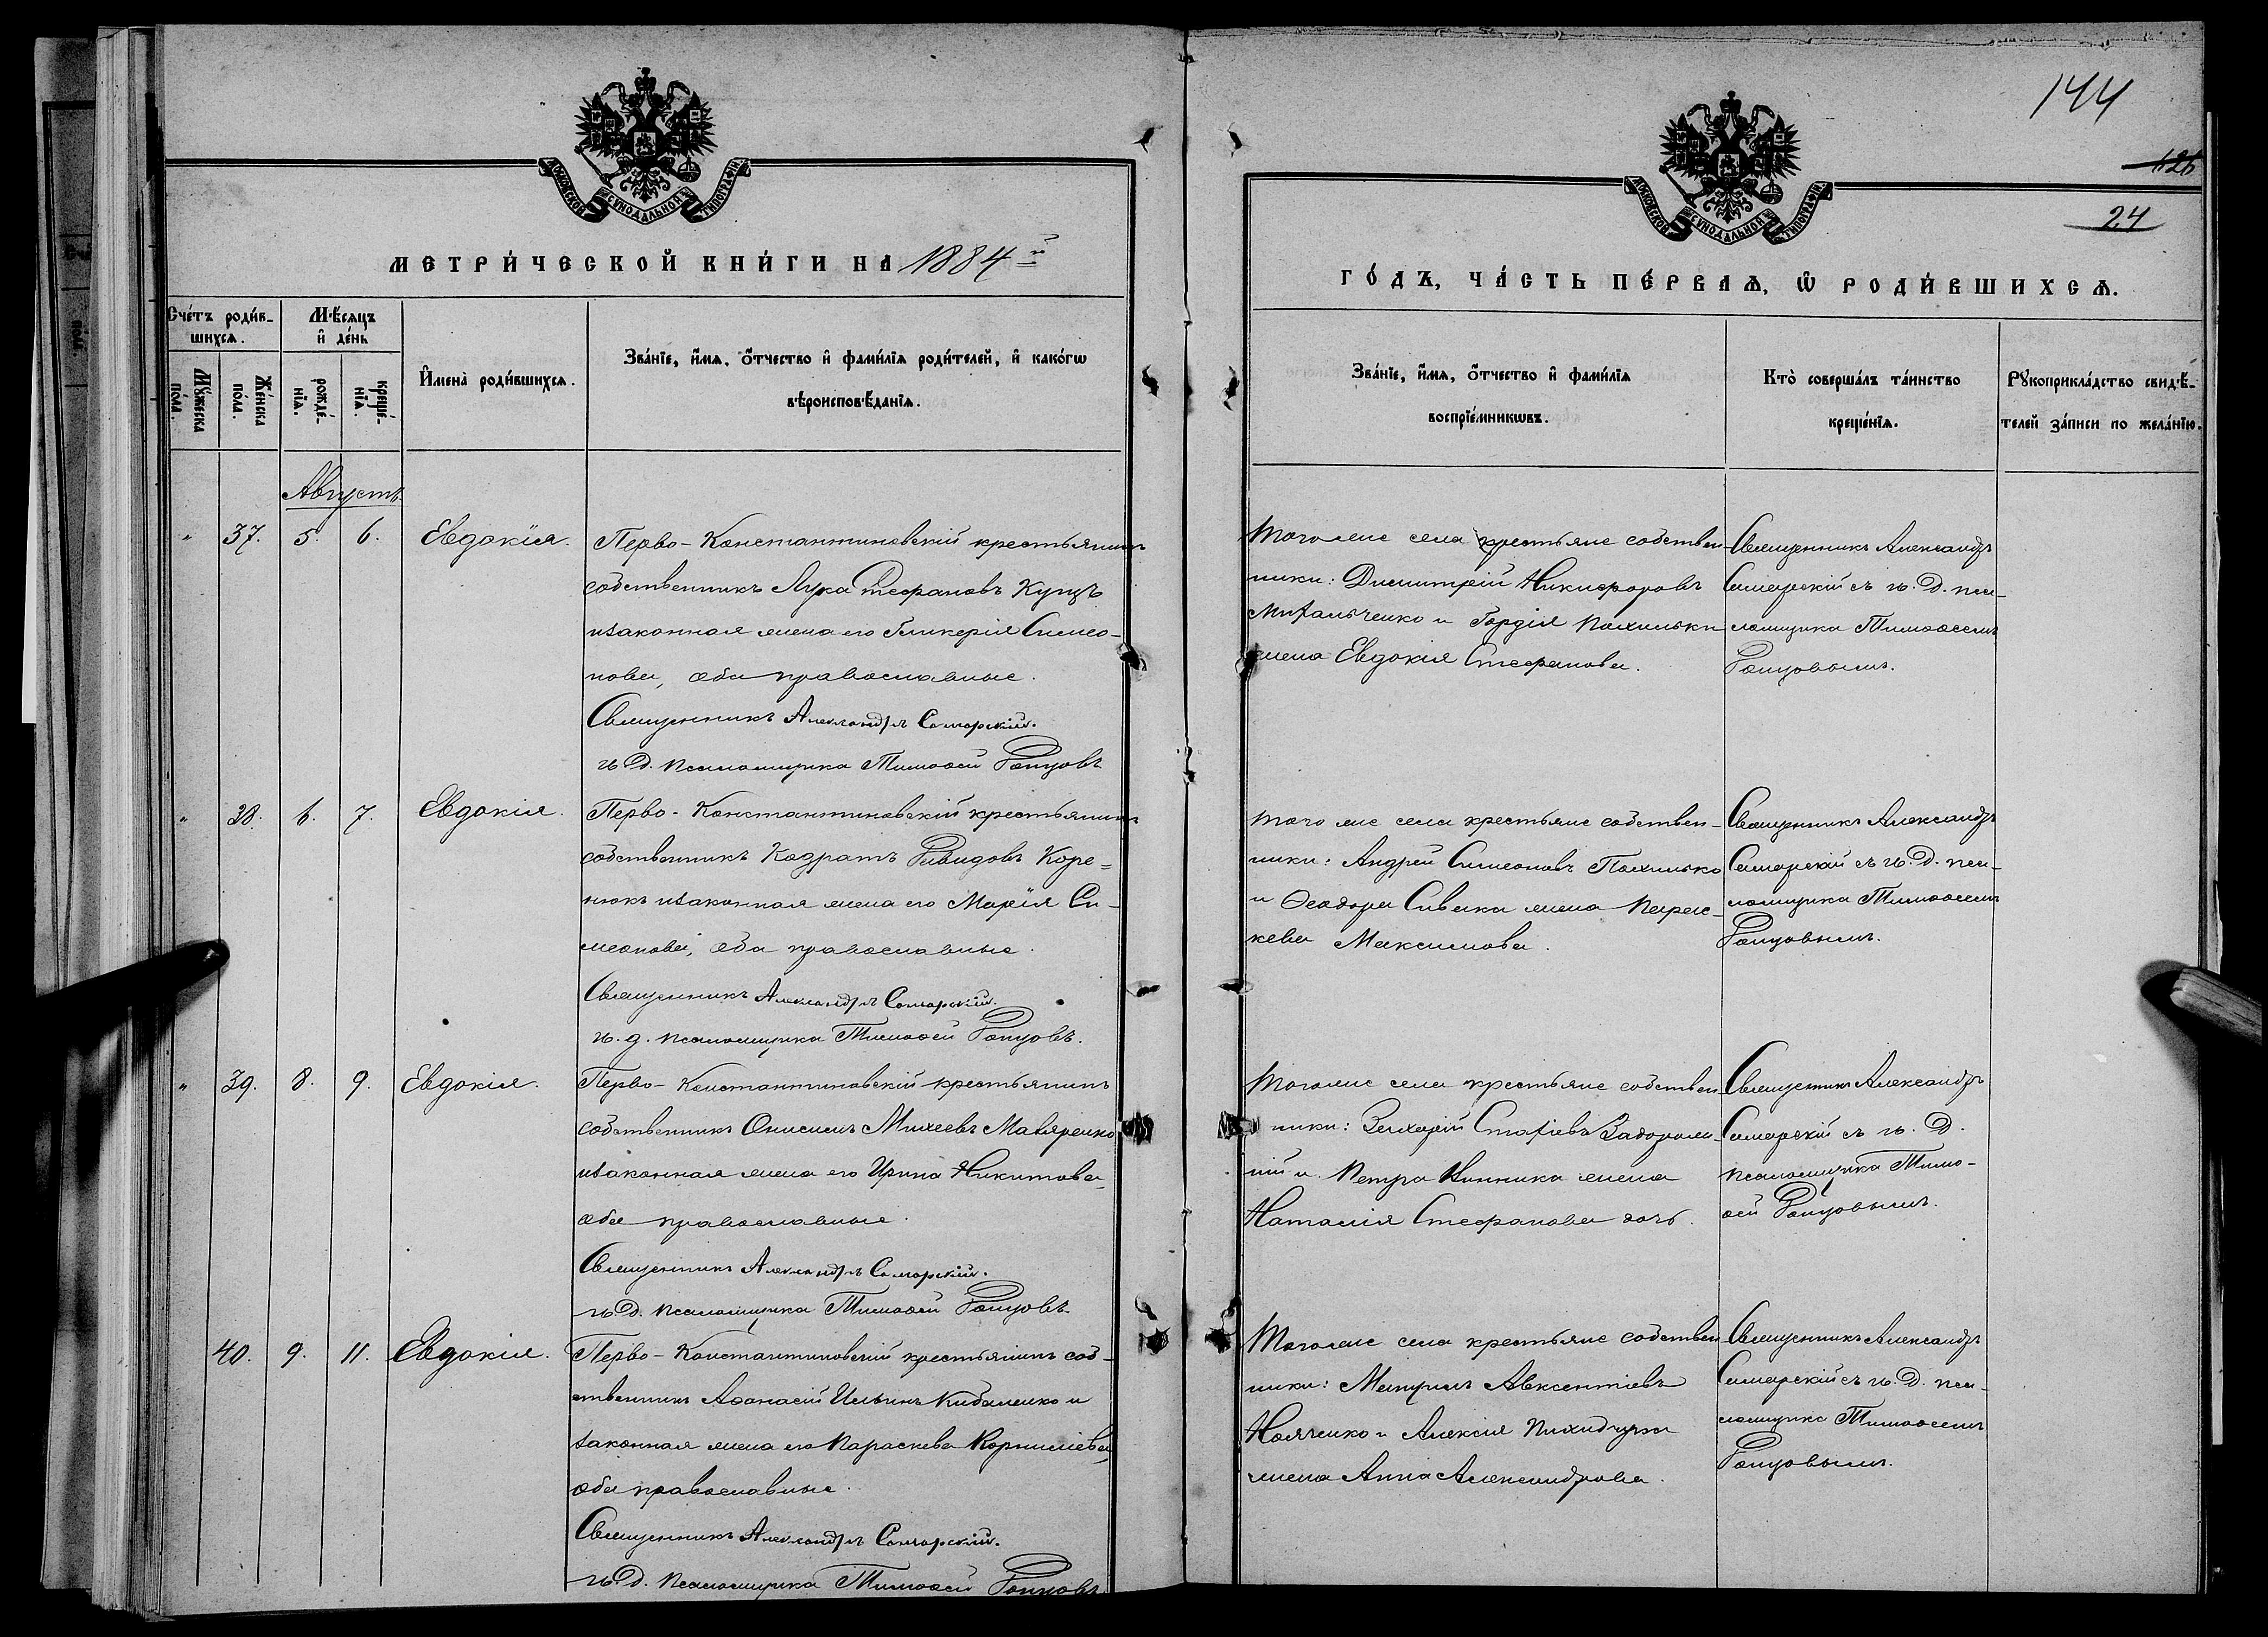 МОСКОВСКОЙ СѴНОДАЛЬНОЙ ТИПОГРАФІИ
МЕТРИ́ЧЕСКОЙ КНИ́ГИ НА 1884й
Сче́тъ роди́в-
шихсѧ.
Мѣ́сѧцъ
и҆ де́нь
Мꙋ́жеска
по́ла.
Же́нска
по́ла.
рожде́-
нїѧ.
креще́-
нїѧ.
И҆мена̀ роди́вшихсѧ.
Зва́нїе, и҆́мѧ, ѻ҆́тчество и҆ фами́лїѧ роди́телей, и҆ како́гѡ
вѣроисповѣ́данїѧ.
Августъ
" 37. 5. 6. Евдокія.
Перво-Константиновскій крестьянинъ
собственникъ Лука Стефановъ Купцъ
и законная жена его Гликерія Симео-
нова, оба православные.
Священникъ Александръ Самарскій.
и. Д. псаломщика Тимофей Ропцовъ
" 38. 6. 7. Евдокія.
Перво-Константиновскій крестьянинъ
собственникъ Кодратъ Коре=
нюкъ и законная жена его Марія Си-
меонова, оба православные.
Священникъ Александръ Самарскій.
и. д. псаломщика Тимофей Ропцовъ.
" 39. 8. 9. Евдокія.
Перво-Константиновскій крестьянинъ
собственникъ Онисимъ Михеевъ
и законная жена его Ирина Никитова,
оба православные.
Священникъ Александръ Самарскій.
и. Д. псаломщика Тимофей Ропцовъ
40. 9. 11. Евдокія.
Перво-Константиновскій крестьянинъ соб-
ственникъ Аѳанасій Ильинъ Кибаленко и
законная жена его Параскева Корниліева,
оба православные.
Священникъ Александръ Самарскій.
и. Д. псаломщика Тимофей Ропцовъ
144
126
24
МОСКОВСКОЙ СѴНОДАЛЬНОЙ ТИПОГРАФІИ
ГО́ДЪ, ЧА́СТЬ ПЕ́РВАѦ, Ѽ РОДИ́ВШИХСѦ.
Зва́нїе, и҆́мѧ, ѻ҆́тчество и҆ фами́лїѧ
воспрїе́мникѡвъ.
Кто̀ соверша́лъ та́инство
креще́нїѧ.
Рꙋкоприкла́дство свидѣ́-
телей за́писи по жела́нїю.
Тогоже села крестьяне собствен-
ники: Димитрій Никифоровъ
Михальченко и Гордія Похилька
жена Евдокія Стефанова.
Священникъ Александръ
Самарскій съ и. Д. пса-
ломщика Тимофеемъ
Ропцовымъ.
Того же села крестьяне собствен-
ники: Андрей Симеоновъ Похилько
и Ѳеодора Сивака жена Парас-
кева Максимова.
Священникъ Александръ
Самарскій съ и. Д. пса-
ломщика Тимофеемъ
Ропцовымъ.
Тогоже села крестьяне собствен-
ники: Захарій Задорож-
ній и Петра Винника жена
Наталія Стефанова дочь.
Священникъ Александръ
Самарскій съ и. Д.
псаломщика Тимо-
феи Ропцовымъ.
Тогоже села крестьяне собствен-
ники: Авксентіевъ
и Алексія
жена Анна Александрова.
Священникъ Александръ
Самарскій съ и. Д. пса-
ломщика Тимофеемъ
Ропцовымъ.